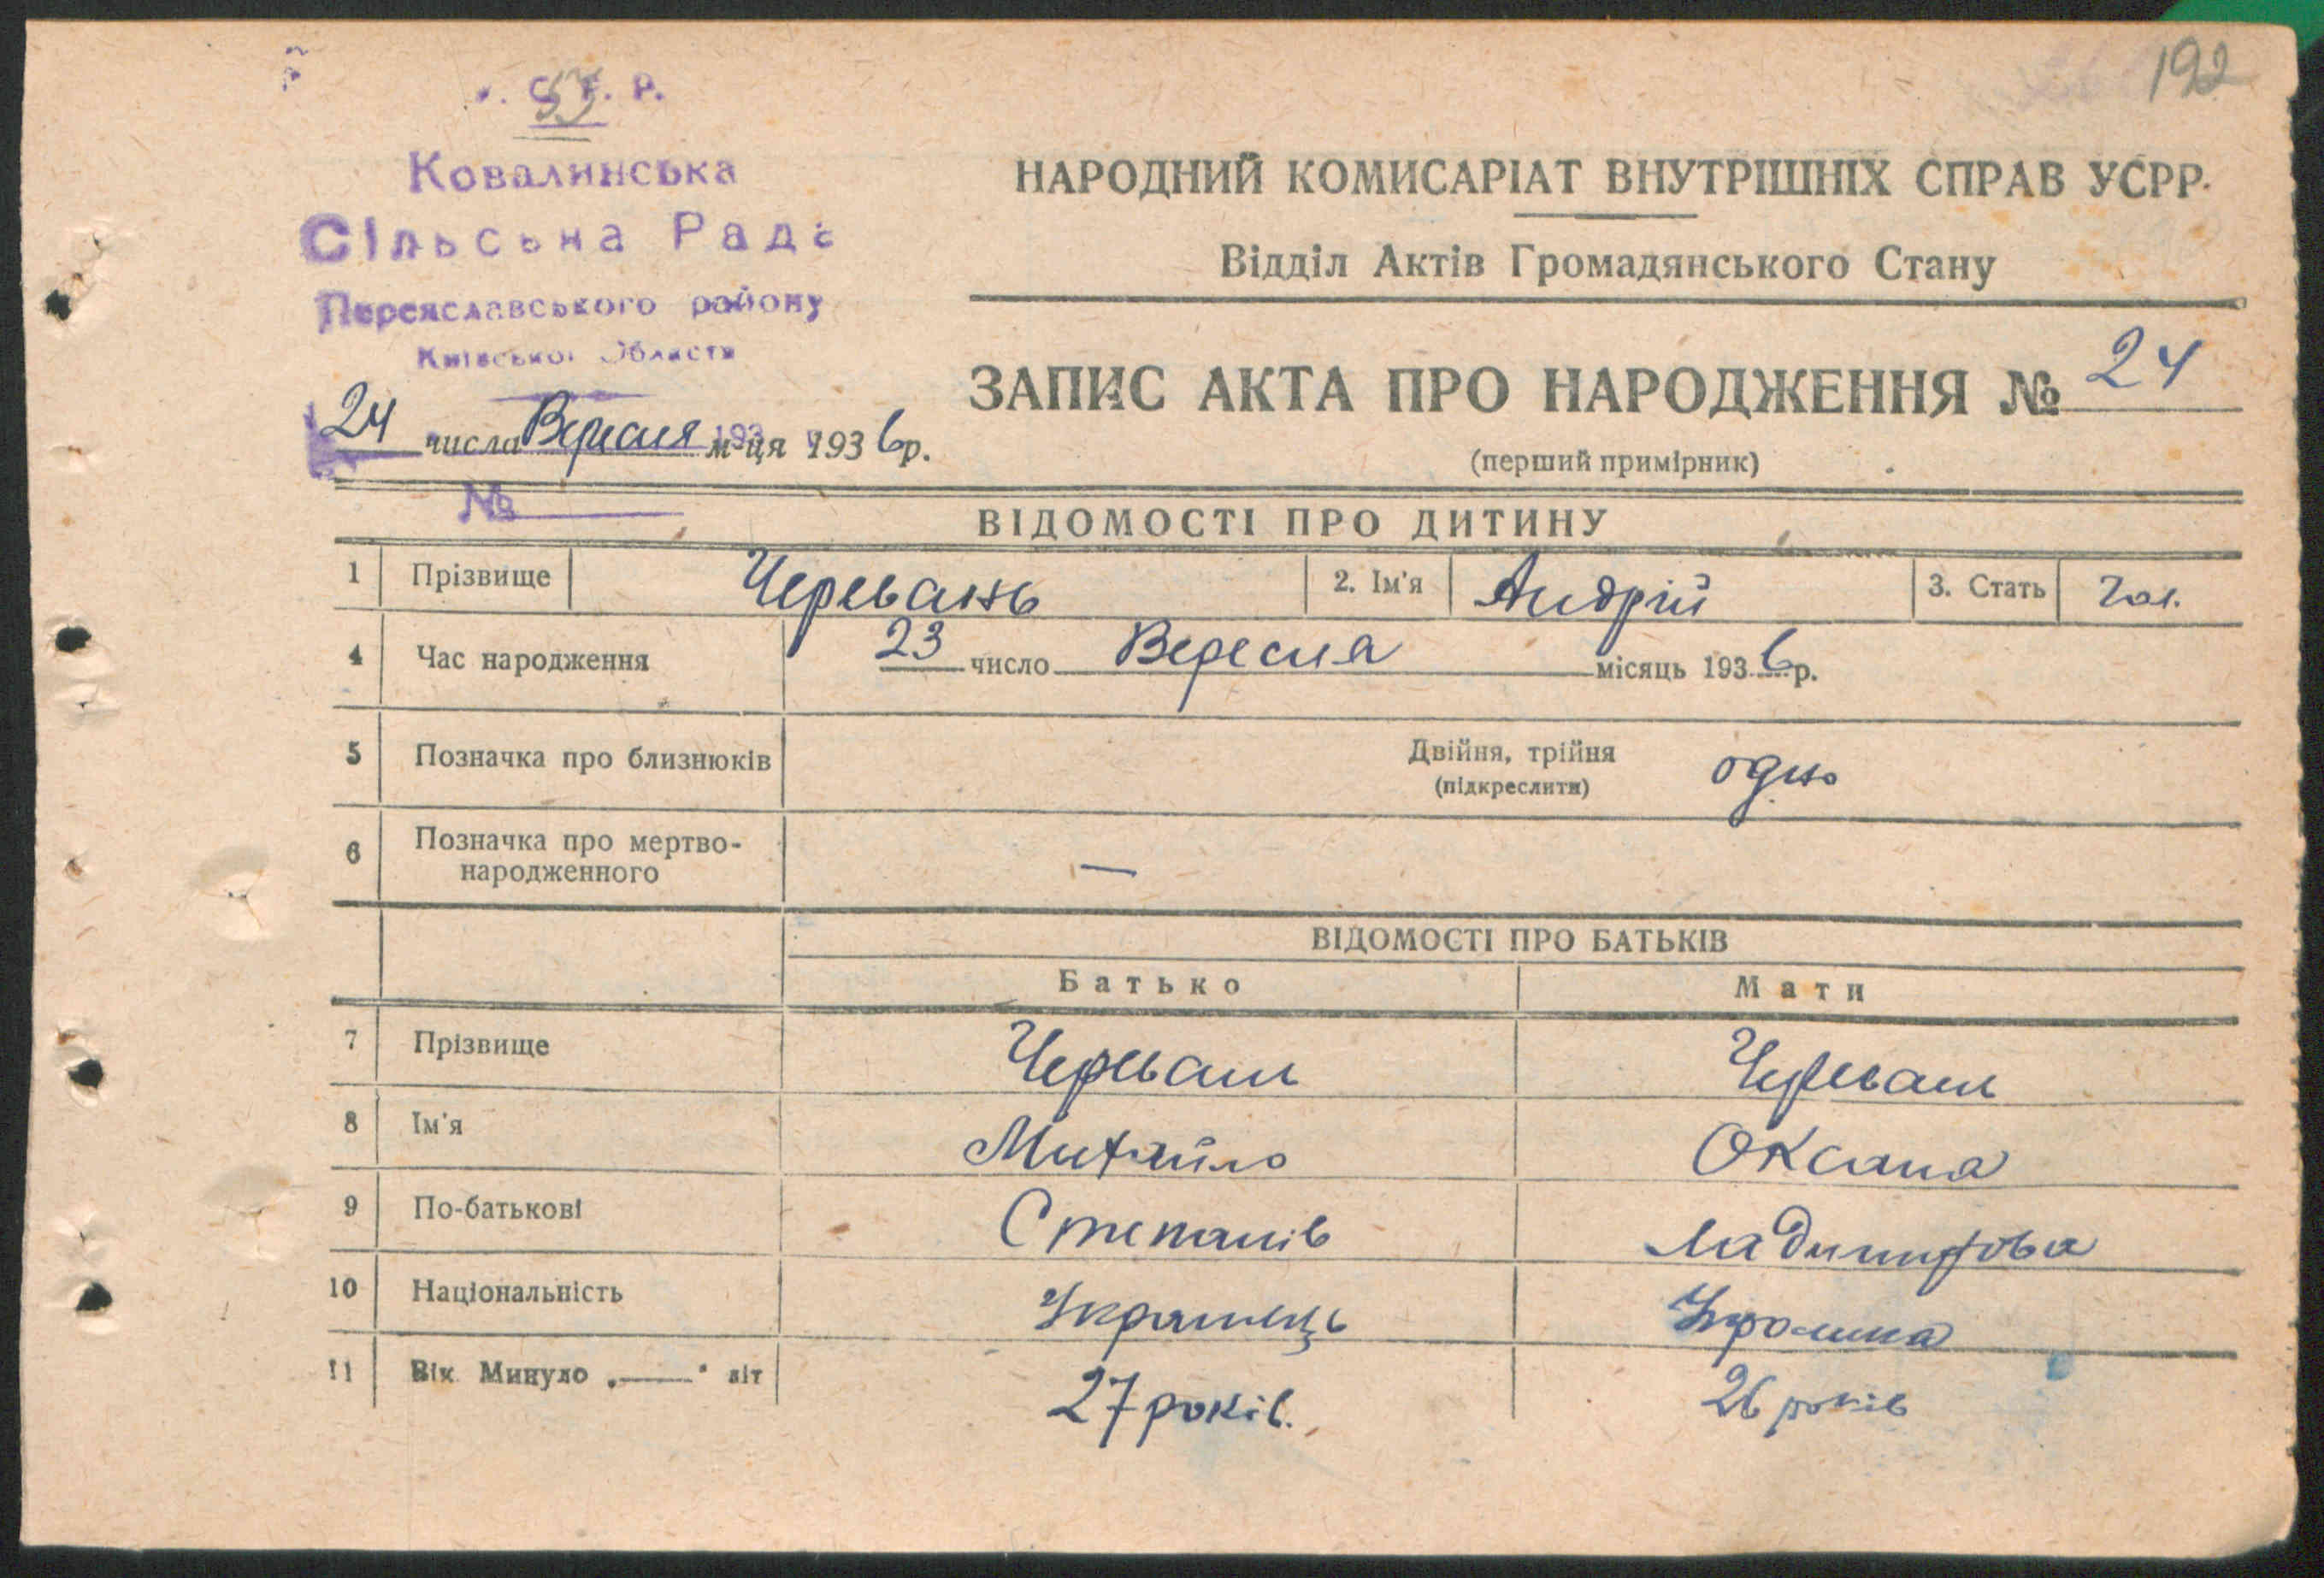 192
С. Р. Р.
Ковалинська
Сільська Рада
Переяславського району
Київської Области
НАРОДНИЙ КОМИСАРІАТ ВНУТРІШНІХ СПРАВ УСРР.
Відділ Актів Громадянського Стану
ЗАПИС АКТА ПРО НАРОДЖЕННЯ № 24
(перший примірник)
24 числа Вересня м-ця 1936 р.
№
ВІДОМОСТІ ПРО ДИТИНУ
1 Прізвище Черевань 2. Ім'я Андрій 3. Стать чол.
4 Час народження 23 число Вересня місяць 1936 р.
5 Позначка про близнюків Двійня, трійня одно
(підкреслити)
6 Позначка про мертво-
народженного —
ВІДОМОСТІ ПРО БАТЬКІВ
Батько Мати
7 Прізвище Черевань Черевань
8 Ім'я Михайло Оксана
9 По-батькові Степанів Ладимирова
10 Національність Українець Українка
11 Вік Минуло „—" літ 27 років. 26 років